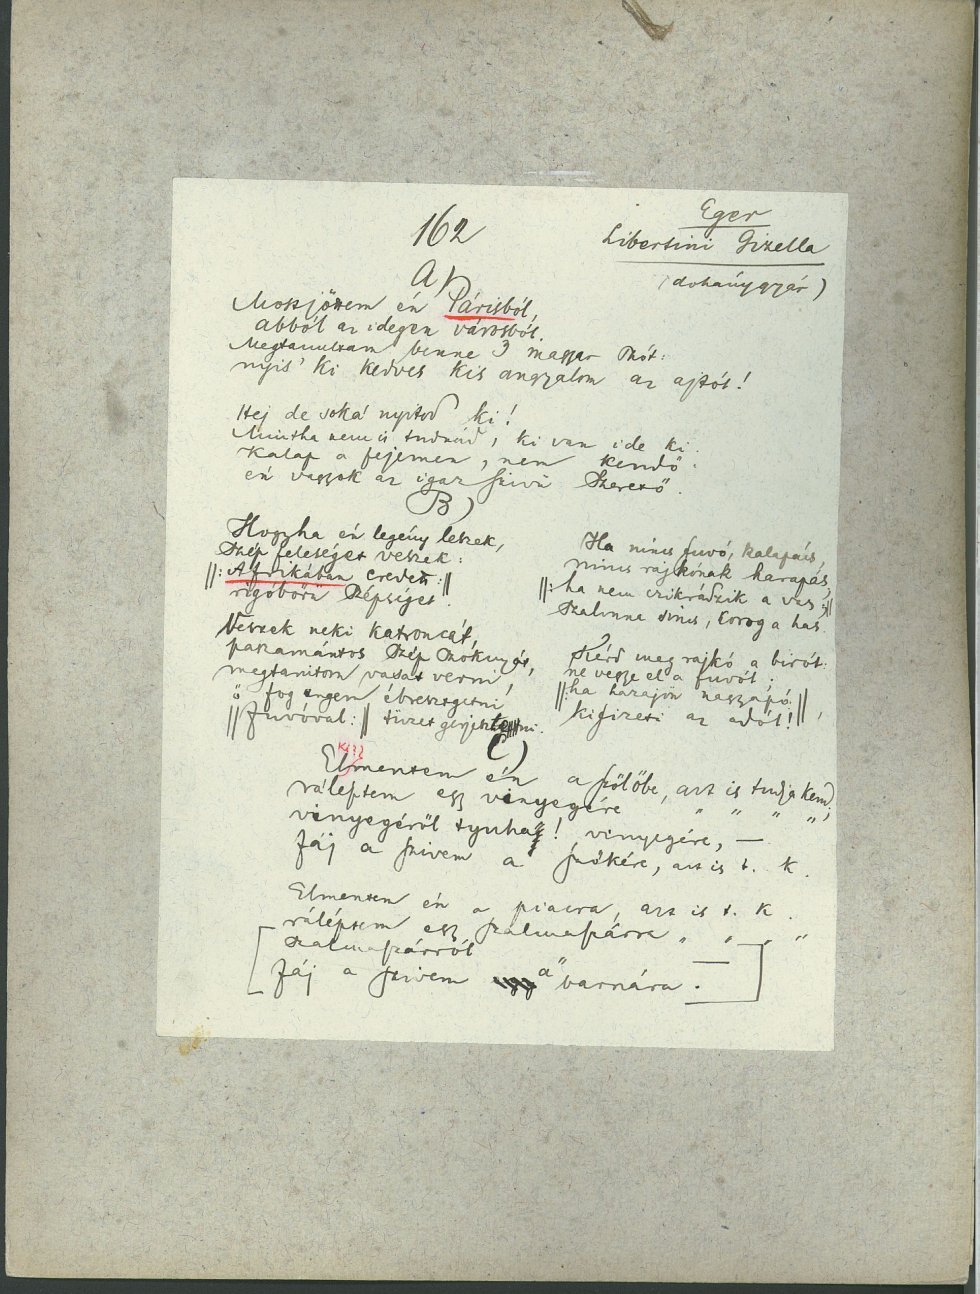 162
Eger
Libertini Gizella
(dohánygyár)
A)
Most jöttem én Párisból,
abból az idegen városból.
Megtanultam benne 3 magyar szót:
nyis' ki kedves kis angyalom az ajtót!
Hej de soká nyitod ki!
Mintha nem is tudnád, ki van ide ki.
Kalap a fejemen, nem kendő.
én vagyok az igaz szivü szerető.
B)
Hogyha én legény leszek,
szép feleséget veszek:
||: Afrikában eredett :||
rigóbörü szépséget.
Veszek neki katroncát,
paszamántos szép szoknyát,
megtanitom vasat verni,
ő fog engem ébresztgetni
|| fuvóval: || tüzet gerjeszteni.
Ha nincs fuvó, kalapács,
nincs rajkónak harapás,
||: ha nem czikrádzik a vas, :||
szalonna sincs, korog a has.
Kérd meg rajkó a birót
ne vegye el a fuvót;
||: ha hazajön nagyapó :||,
kifizeti az adót!
C)
Ki??
Elmentem én a szőlőbe, azt is tudja kend,
ráléptem egy vinyegére " " " "
vinyegéről tyuha! vinyegére, —
Fáj a szivem a szőkére, azt is t. k.
Elmentem én a piacra, azt is t. k.
ráléptem egy szalmaszárra " " " "
[szalmaszárról —
Fáj a szivem a barnára. —]